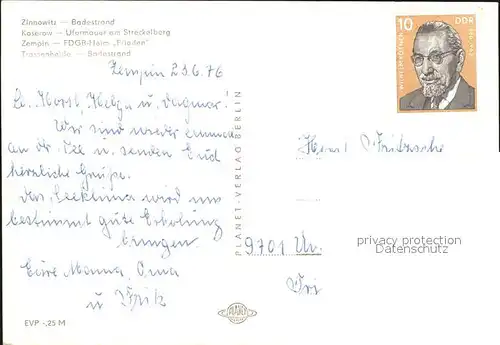 Zinnowitz — Badestrand
Koserow — Ufermauer am Streckelberg
Zempin — FDGB-Heim „Frieden"
Trassenheide — Badestrand
Zempin 23.6.76
L. Horst, Helga u. Dagmar.
Wir sind wieder einmal
an der See u. senden Euch
herzliche Grüße.
Das Seeklima wird uns
bestimmt gute Erholung
bringen
Eure Mama, Oma
u
EVP -,25 M
PLANET-VERLAG BERLIN
PLANET
10
DDR
WILHELM KÜLZ
Horst Fritzsche
9701
privacy protection
Datenschutz